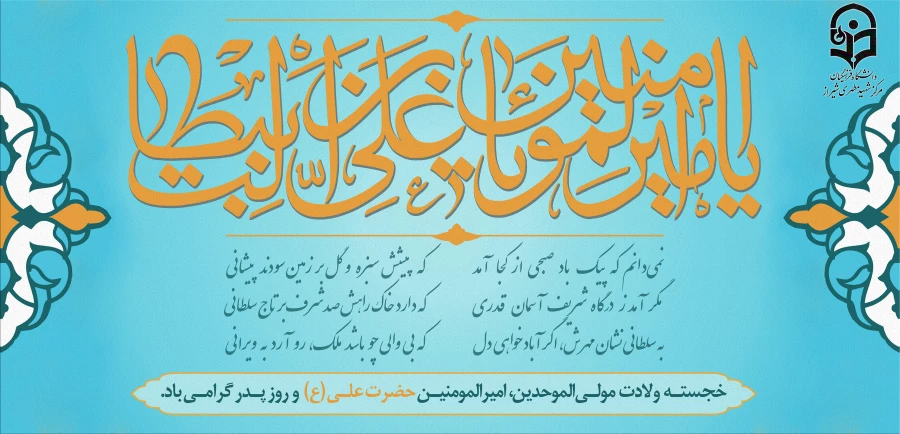 دانشگاه فرهنگیان
مرکز شهید مطهری شیراز
یا امیرالمومنین یا علی بن ابیطالب
نمی‌دانم که پیک باد صبحی از کجا آمد
که پیشش سبزه و گل بر زمین سودند پیشانی
مگر آمد ز درگاه شریف آسمان قدری
که دارد خاک راهش صد شرف بر تاج سلطانی
به سلطانی نشان مهرش، اگر آباد خواهی دل
که بی والی چو باشد ملک، رو آرد به ویرانی
خجسته ولادت مولی‌الموحدین، امیرالمومنین حضرت علی (ع) و روز پدر گرامی‌باد.